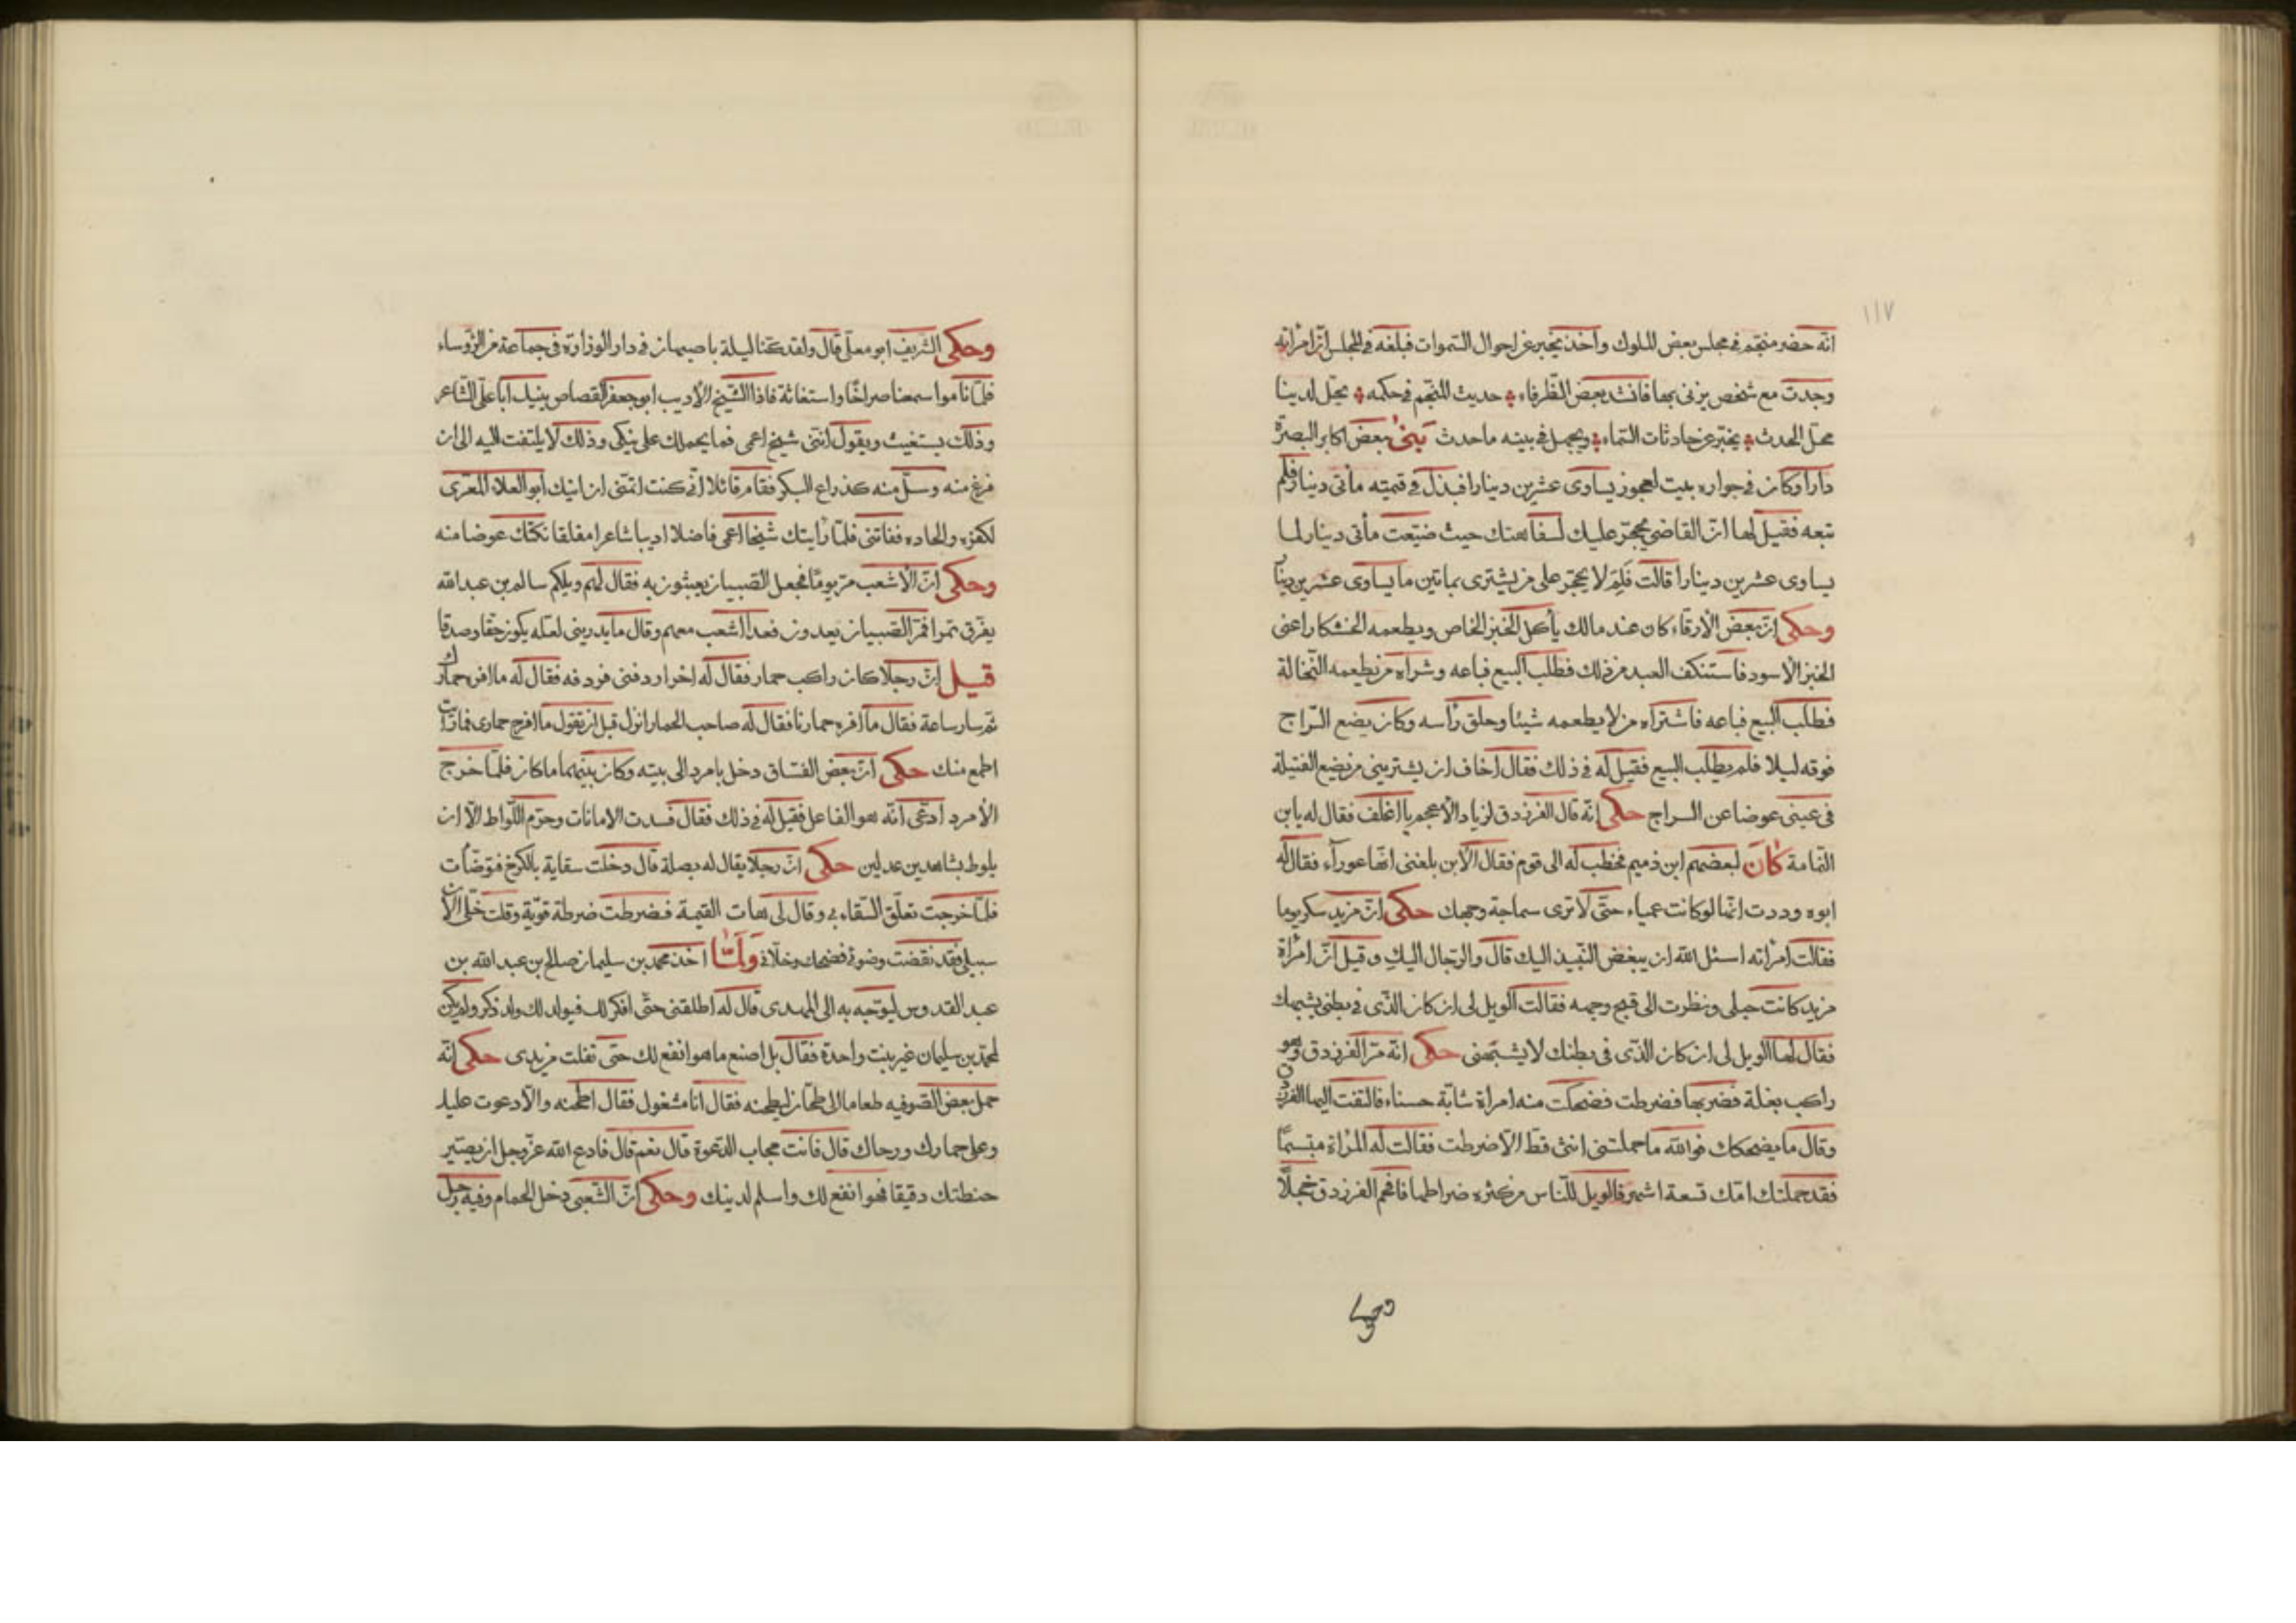 ١١٧
انّه حضر منجّم في مجلس بعض الملوك واخذ يخبر عن احوال السّموات فبلغه في المجلس انّ امرأته
وجدت مع شخص يزني بها فانشد بعض الظّرفاء حديث المنجّم في حكمه يحلّ لدينا
محلّ الحدث يخبّر عن حادثات السّماء ويجهل في بيته ما حدث بنى بعض اكابر البصرة
دارا وكان في جواره بيت لعجوز يساوى عشرين دينارا فبذل في قيمته مأتى دينار فلم
تبعه فقيل لها انّ القاضي يحجّر عليك لسفاهتك حيث ضيّعت مأتى دينار لما
يساوى عشرين دينارا قالت فَلِمَ لا يحجّر على من يشترى بمأتين ما يساوى عشرين دينارا
وحكى انّ بعض الأرقّاء كان عند مالك يأكل الخبز الخاص ويطعمه الخشكار اعنى
الخبز الأسود فاستنكف العبد من ذلك فطلب البيع فباعه وشراه من يطعمه النّخالة
فطلب البيع فباعه فاشتراه من لا يطعمه شيئا وحلق رأسه وكان يضع السّراج
فوقه ليلا فلم يطلب البيع فقيل له في ذلك فقال اخاف ان يشترينى من يضع الفتيلة
في عينى عوضا عن السراج حكى انّه قال الفرزدق لزياد الأعجم يا اغلف فقال له يابن
النّمامة كانَ لبعضهم ابن ذميم فخطب له الى قوم فقال الأبن بلغنى انّها عوراء فقال له
ابوه وددت انّها لو كانت عمياء حتّى لا ترى سماجة وجهك حكى انّ مزيد سكر يوما
فقالت امرأته اسئل الله ان يبغض النّبيذ اليك قال والرّجال اليكِ وقيل انّ امرأة
مزيد كانت حبلى ونظرت الى قبح وجهه فقالت الويل لى ان كان الّذى في بطنى يشبهك
فقال لها الويل لى ان كان الّذى في بطنك لا يشبهنى حكى انّه مرّ الفرزدق وهو
راكب بغلة فضربها فضرطت فضحكت منه امرأة شابّة حسناء فالتفت اليها الفرزدق
وقال ما يضحكك فوالله ما حملتنى انثى قطّ الّا ضرطت فقالت له المرأة متبسمًا
فقد حملتك امّك تسعة اشهر فالويل للنّاس من كثرة ضراطها فافحم الفرزدق خجلًا
وحكى
وحكى الشّريف ابو معلّى قال ولقد كنّا ليلة باصبهان في دار الوزارة في جماعة من الرّؤساء
فلمّا ناموا سمعنا صراخًا واستغاثة فاذا الشّيخ الأديب ابو جعفر القصاص ينيك ابا علىّ الشّاعر
وذلك يستغيث ويقول انّنى شيخ اعمى فما يحملك على نيكى وذلك لا يلتفت اليه الى ان
فرغ منه وسلّ منه كذراع البكر فقام قائلا انّى كنت اتمنّى ان انيك ابو العلاء المعرّى
لكفره والحاده ففاتنى فلمّا رأيتك شيخا اعمى فاضلا اديبا شاعرا مفلقا نكتك عوضا منه
وحكى انّ الأشعب مرّ يومًا فجعل الصّبيان يعبثون به فقال لهم ويلكم سالم بن عبد الله
يفرّق تمرا فمرّ الصّبيان يعدون فعدا اشعب معهم وقال ما يدرينى لعلّه يكون حقّا وصدقا
قيل انّ رجلا كان راكب حمار فقال له اخر اردفنى فردفه فقال له ما افره حمارك
ثم سار ساعة فقال ما افره حمارنا فقال له صاحب الحمار انزل قبل ان تقول ما افره حمارى فما رأيت
اطمع منك حكى انّ بعض الفسّاق دخل بامرد الى بيته وكان بينهما ما كان فلمّا خرج
الأمرد ادّعى انّه هو الفاعل فقيل له في ذلك فقال فسدت الامانات وحرّم اللّواط الّا ان
يلوط بشاهدين عدلين حكى انّ رجلا يقال له بصلة قال دخلت سقاية بالكرخ فتوضّأت
فلمّا خرجت تعلّق السّقاء بى وقال لى هات القيمة فضرطت ضرطة قويّة وقلت خلّ الآن
سبيلى فقد نقضت وضوئى فضحك وخلّانى وَلَمّا اخذ محمد بن سليمان صالح بن عبد الله بن
عبد القدوس ليوجّه به الى المهدى قال له اطلقنى حتّى افكر لك فيولد لك ولد ذكر ولم يكن
لمحمّد بن سليمان غير بنت واحدة فقال بل اصنع ما هو انفع لك حتى تفلت من يدى حكى انّه
حمل بعض الصّوفيه طعاما الى طحّان ليطحنه فقال انا مشغول فقال اطحنه والّا دعوت عليك
وعلى حمارك ورحاك قال فانت مجاب الدّعوة قال نعم قال فادع الله عزّ وجلّ ان يصيّر
حنطتك دقيقا فهو انفع لك واسلم لدينك وحكى انّ الشّعبى دخل الحمام وفيه رجل